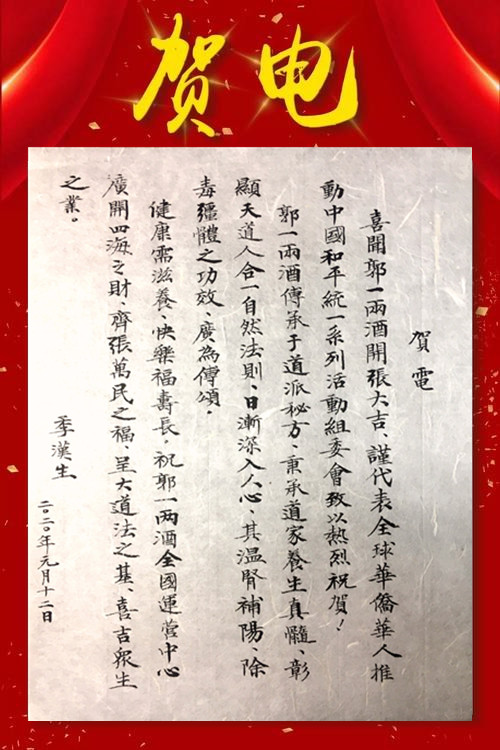 贺电
賀電
喜聞郭一兩酒開張大吉、謹代表全球華僑華人推
動中國和平統一系列活動組委會致以熱烈祝賀！
郭一兩酒傳承于道派秘方、秉承道家養生真髓、彰
顯天道人合一自然法則、日漸深入人心、其溫腎補陽、除
毒彊體之功效、廣為傳頌。
健康需滋養、快樂福壽長。祝郭一两酒全國運营中心
廣開四海之財、齊張萬民之福 呈大道法之基、喜吉衆生
之業。
季漢生
二〇二〇年元月十二日